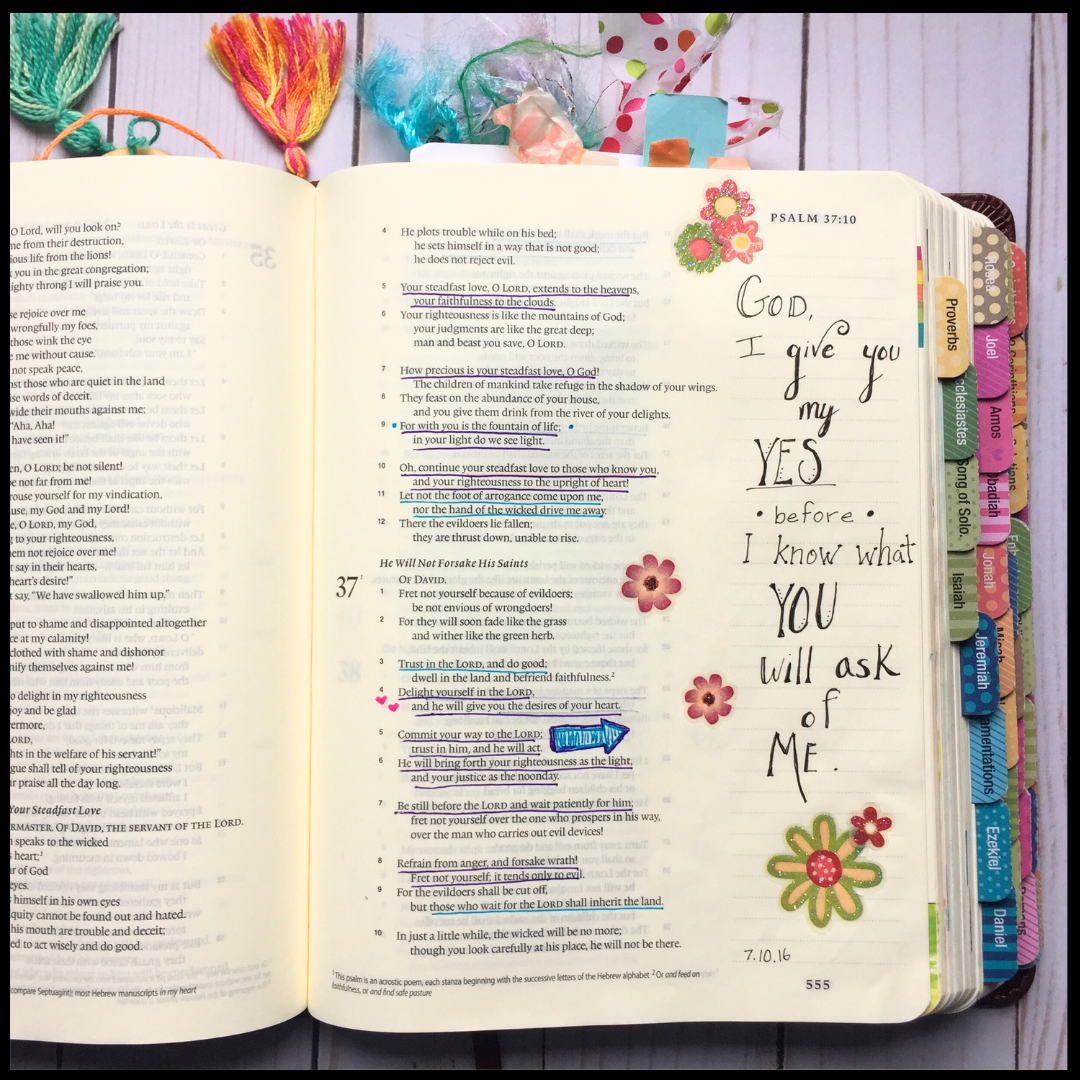 O Lord, will you look on?
me from their destruction,
ious life from the lions!
you in the great congregation;
ighty throng I will praise you.
se rejoice over me
wrongfully my foes,
those wink the eye
me without cause.
not speak peace,
nst those who are quiet in the land
se words of deceit.
wide their mouths against me;
"Aha, Aha!
have seen it!"
en, O LORD; be not silent!
e not far from me!
rouse yourself for my vindication,
use, my God and my Lord!
e, O LORD, my God,
g to your righteousness,
em not rejoice over me!
say in their hearts,
heart's desire!"
say, "We have swallowed him up."
put to shame and disappointed altogether
ce at my calamity!
clothed with shame and dishonor
nify themselves against me!
o delight in my righteousness
joy and be glad
ermore,
ORD,
hts in the welfare of his servant!"
gue shall tell of your righteousness
r praise all the day long.
Your Steadfast Love
RMASTER. OF DAVID, THE SERVANT OF THE LORD.
speaks to the wicked
heart;1
r of God
eyes.
himself in his own eyes
quity cannot be found out and hated.
his mouth are trouble and deceit;
ed to act wisely and do good.
compare Septuagint); most Hebrew manuscripts in my heart
PSALM 37:10
4 He plots trouble while on his bed;
he sets himself in a way that is not good;
he does not reject evil.
5 Your steadfast love, O LORD, extends to the heavens,
your faithfulness to the clouds.
6 Your righteousness is like the mountains of God;
your judgments are like the great deep;
man and beast you save, O LORD.
7 How precious is your steadfast love, O God!
The children of mankind take refuge in the shadow of your wings.
8 They feast on the abundance of your house,
and you give them drink from the river of your delights.
9 For with you is the fountain of life;
in your light do we see light.
10 Oh, continue your steadfast love to those who know you,
and your righteousness to the upright of heart!
11 Let not the foot of arrogance come upon me,
nor the hand of the wicked drive me away.
12 There the evildoers lie fallen;
they are thrust down, unable to rise.
He Will Not Forsake His Saints
37 OF DAVID.
1 Fret not yourself because of evildoers;
be not envious of wrongdoers!
2 For they will soon fade like the grass
and wither like the green herb.
3 Trust in the LORD, and do good;
dwell in the land and befriend faithfulness.2
4 Delight yourself in the LORD,
and he will give you the desires of your heart.
5 Commit your way to the LORD;
trust in him, and he will act.
6 He will bring forth your righteousness as the light,
and your justice as the noonday.
7 Be still before the LORD and wait patiently for him;
fret not yourself over the one who prospers in his way,
over the man who carries out evil devices!
8 Refrain from anger, and forsake wrath!
Fret not yourself; it tends only to evil.
9 For the evildoers shall be cut off,
but those who wait for the LORD shall inherit the land.
10 In just a little while, the wicked will be no more;
though you look carefully at his place, he will not be there.
1 This psalm is an acrostic poem, each stanza beginning with the successive letters of the Hebrew alphabet 2 Or and feed on
faithfulness, or and find safe pasture
555
GOD,
I give you
my
YES
• before •
I know what
YOU
will ask
of
ME.
7.10.16
Proverbs
cclesiastes
Song of Solo.
Isaiah
Jeremiah
amentations
Ezekiel
Daniel
Hosea
Joel
Amos
Obadiah
Jonah
Micah